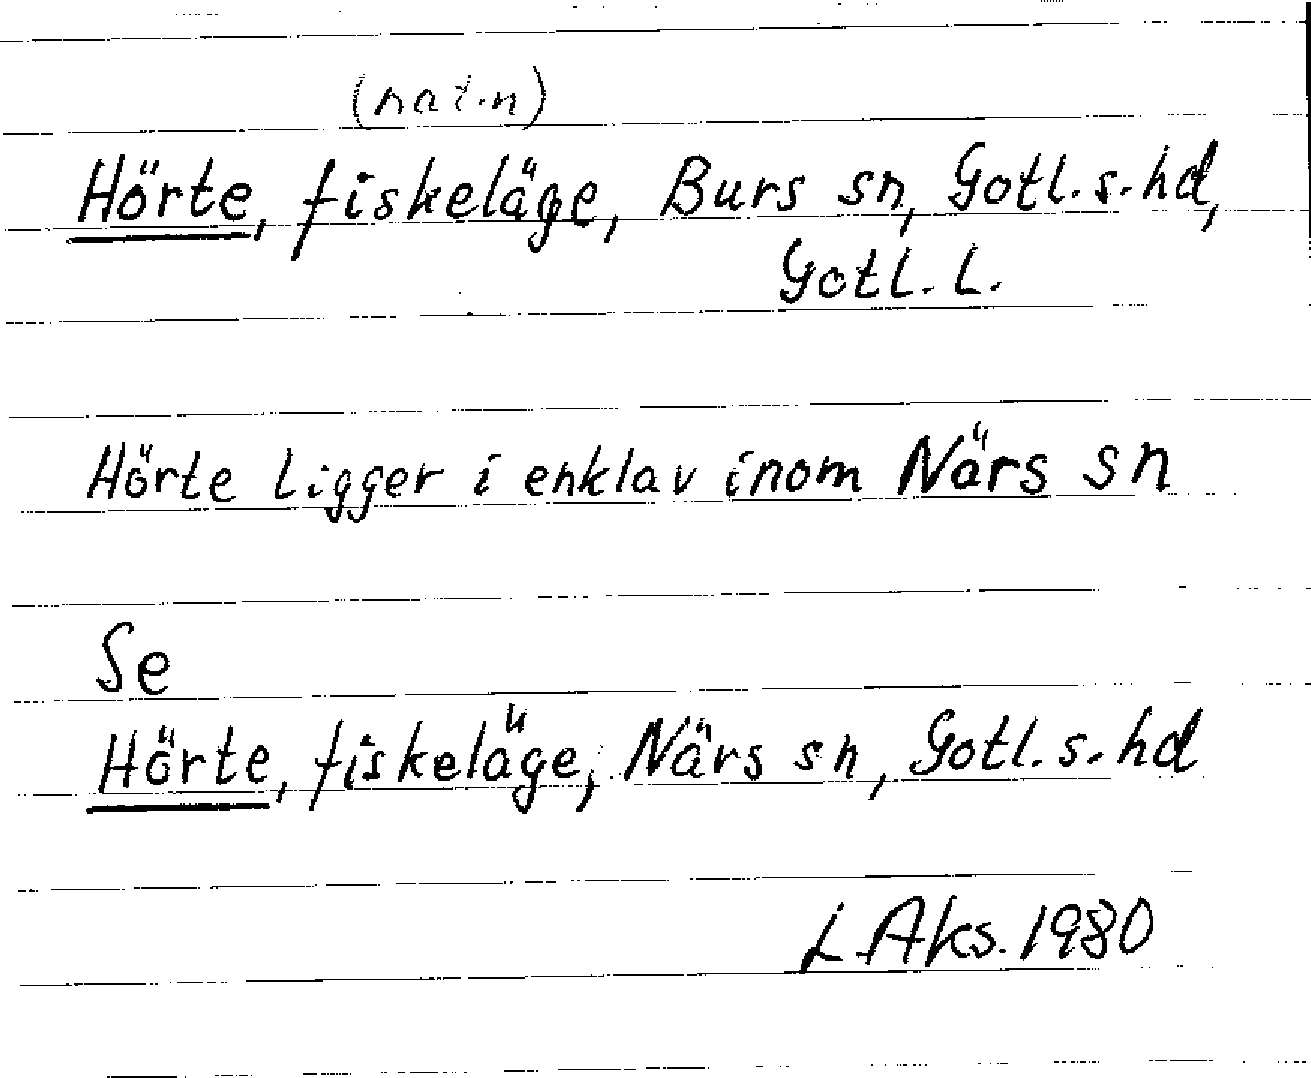 (nat.n)
Hörte, fiskeläge, Burs sn, Gotl. s. hd,
Gotl. L.
Hörte ligger i enklav inom Närs sn
Se
Hörte, fiskeläge, Närs sn, Gotl. s. hd
L. Aks. 1980